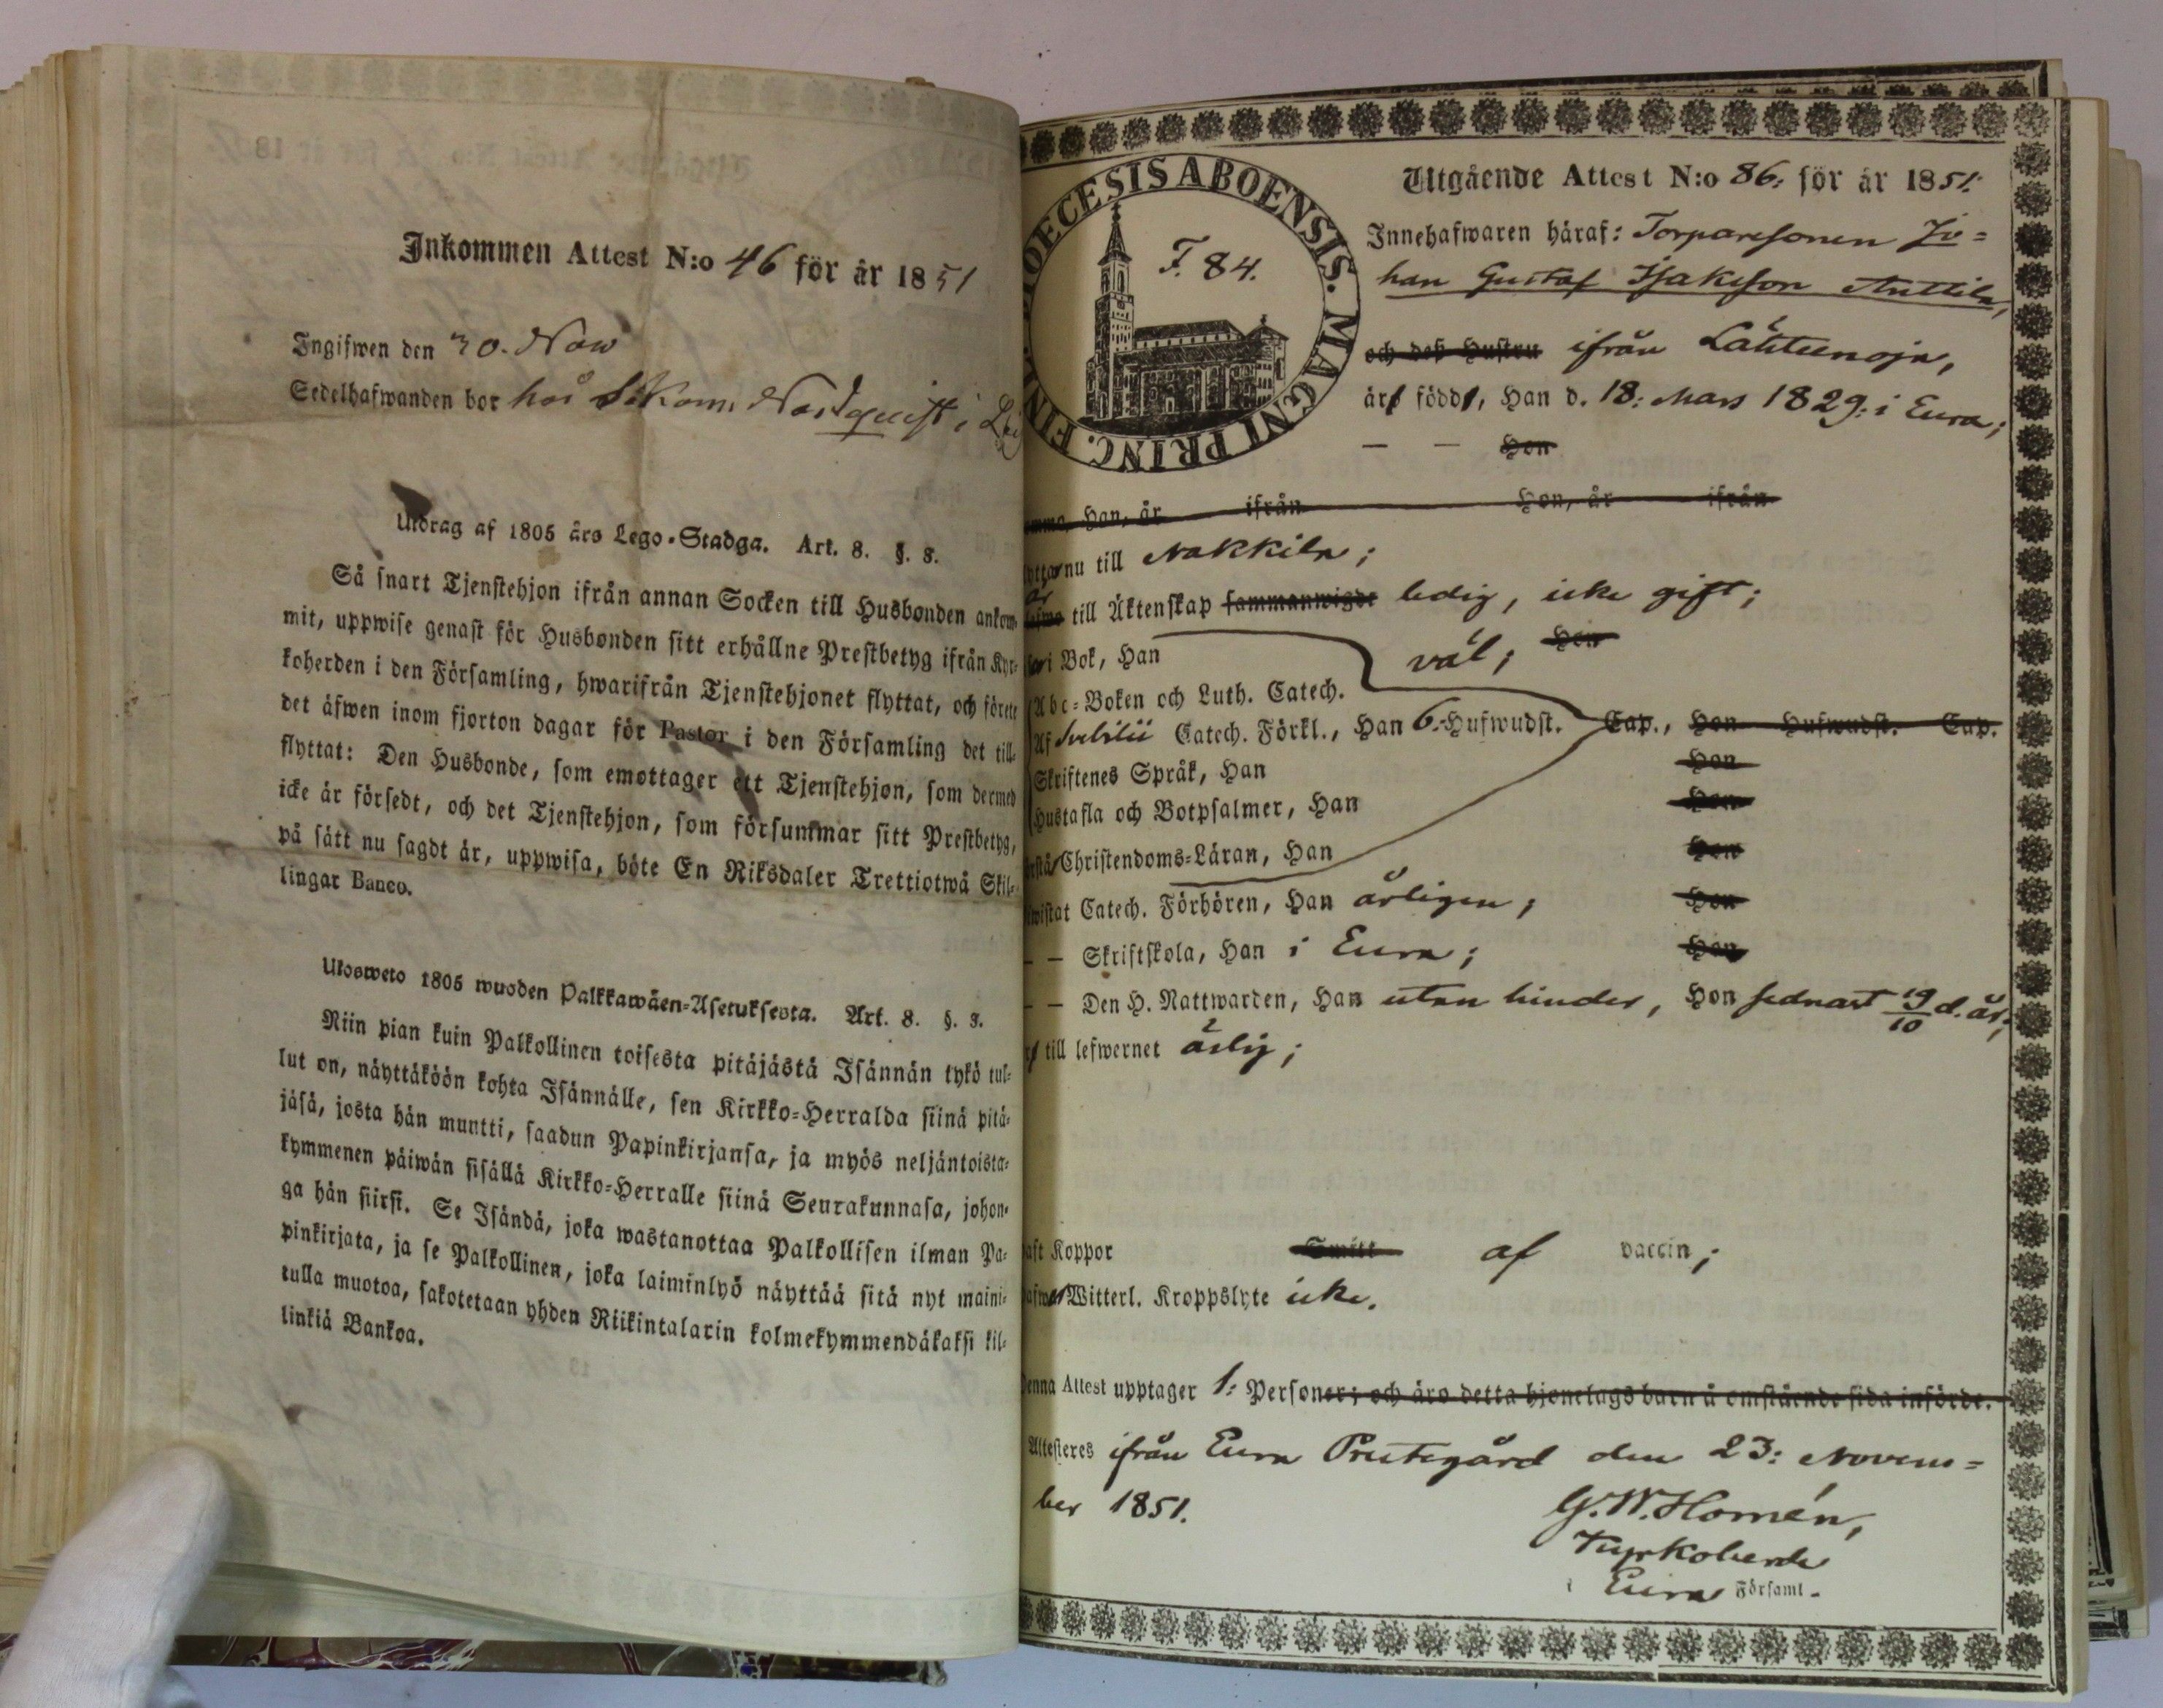 Inkommen Attest N:o 46 för år 1851
Ingifwen den 30. Nov
Sedelhafwanden bor hos Nordquist i
Utdrag af 1805 års Lego-Stadga. Art. 8. §. 8.
Så snart Tjenstehjon ifrån annan Socken till Husbonden ankom-
mit, uppwise genast för Husbonden sitt erhållne Prestbetyg ifrån Kyr-
koherden i den Församling, hwarifrån Tjenstehjonet flyttat, och förete
det äfwen inom fjorton dagar för Pastor i den Församling det till-
flyttat: Den Husbonde, som emottager ett Tjenstehjon, som dermed
icke är försedt, och det Tjenstehjon, som försummar sitt Prestbetyg,
på sätt nu sagdt är, uppwisa, böte En Riksdaler Trettiotwå Skil-
lingar Banco.
Ulosweto 1805 wuoden Palkkawäen-Asetuksesta. Art. 8. §. 8.
Niin pian kuin Palkollinen toisesta pitäjästä Isännän tykö tul-
lut on, näyttäköön kohta Isännälle, sen Kirkko-Herralda siinä pitä-
jäsä, josta hän muutti, saadun Papinkirjansa, ja myös neljäntoista-
kymmenen päiwän sisällä Kirkko-Herralle siinä Seurakunnasa, johon-
ga hän siirsi. Se Isändä, joka wastanottaa Palkollisen ilman Pa-
pinkirjata, ja se Palkollinen, joka laiminlyö näyttää sitä nyt maini-
tulla muotoa, sakotetaan yhden Riikintalarin kolmekymmendäkaksi kil-
linkiä Bankoa.
DIOECESIS ABOENSIS. MAGNI PRINC. FINL.
F. 84.
Utgående Attest N:o 86. för år 1851.
Innehafwaren häraf: Torparesonen Jo-
han Gustaf Isaksson Anttila,
och deß Hustru ifrån Lähteenoja,
är född, Han d. 18: Mars 1829: i Eura;
— — Hon
Han, är ifrån Hon, är ifrån
nu till Nakkila;
är till Äktenskap sammanwigde ledig, icke gift;
i Bok, Han väl; Hon
Abc-Boken och Luth. Catech.
Af Svebilii Catech. Förkl., Han 6. Hufwudst. Cap., Hon Hufwudst. Cap.
Skriftenes Språk, Han Hon
Hustafla och Botpsalmer, Han Hon
Christendoms-Läran, Han Hon
Catech. Förhören, Han årligen; Hon
— — Skriftskola, Han i Eura; Hon
— — Den H. Nattwarden, Han utan hinder, Hon sednast 19/10 d. år;
till lefwernet ärlig;
Koppor Smitt af vaccin;
Witterl. Kroppslyte icke.
Denna Attest upptager 1: Personer; och äro detta hjonelags barn å omstående sida införde.
Attesteres ifrån Eura Prestegård den 23: Novem-
ber 1851.
G. W. Homén,
Kyrkoherde
i Eura Församl.